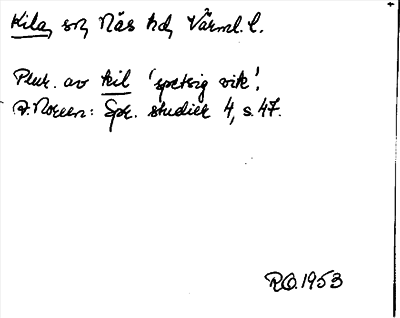 Kila, sn, Näs hd, Värml. l.
Plur. av kil 'spetsig vik'.
A. Noreen: Spr. studier 4, s. 47.
R.O. 1953